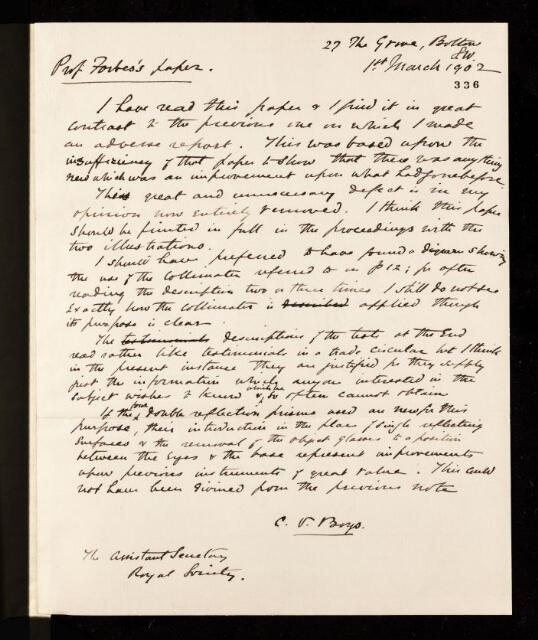 27 The Grove, Boltons
S.W.
Prof Forbes's paper.
1st March 1902
336
I have read this paper & I find it in great
contrast to the previous one on which I made
an adverse report. This was based upon the
insufficiency of that paper to show that there was anything
new which was an improvement upon what had gone before.
This great and unnecessary defect is in my
opinion now entirely removed. I think this paper
should be printed in full in the proceedings with the
two illustrations.
I should have preferred to have found a diagram showing
the use of the collimator referred to on p 12; for after
reading the description two or three times I still do not see
exactly how the collimator is described applied though
its purpose is clear.
The testimonials descriptions of the tests at the end
read rather like testimonials in a trade circular but I think
in the present instance they are justified for they supply
just the information which anyone interested in the
subject wishes to know & so often cannot obtain
If the four double reflection prisms used are new for this
purpose, their introduction in the place of single reflecting
surfaces & the removal of the object glasses to a position
between the eyes & the base represent improvements
upon previous instruments of great value. This could
not have been divined from the previous note
C. V. Boys.
The Assistant Secretary
Royal Society.